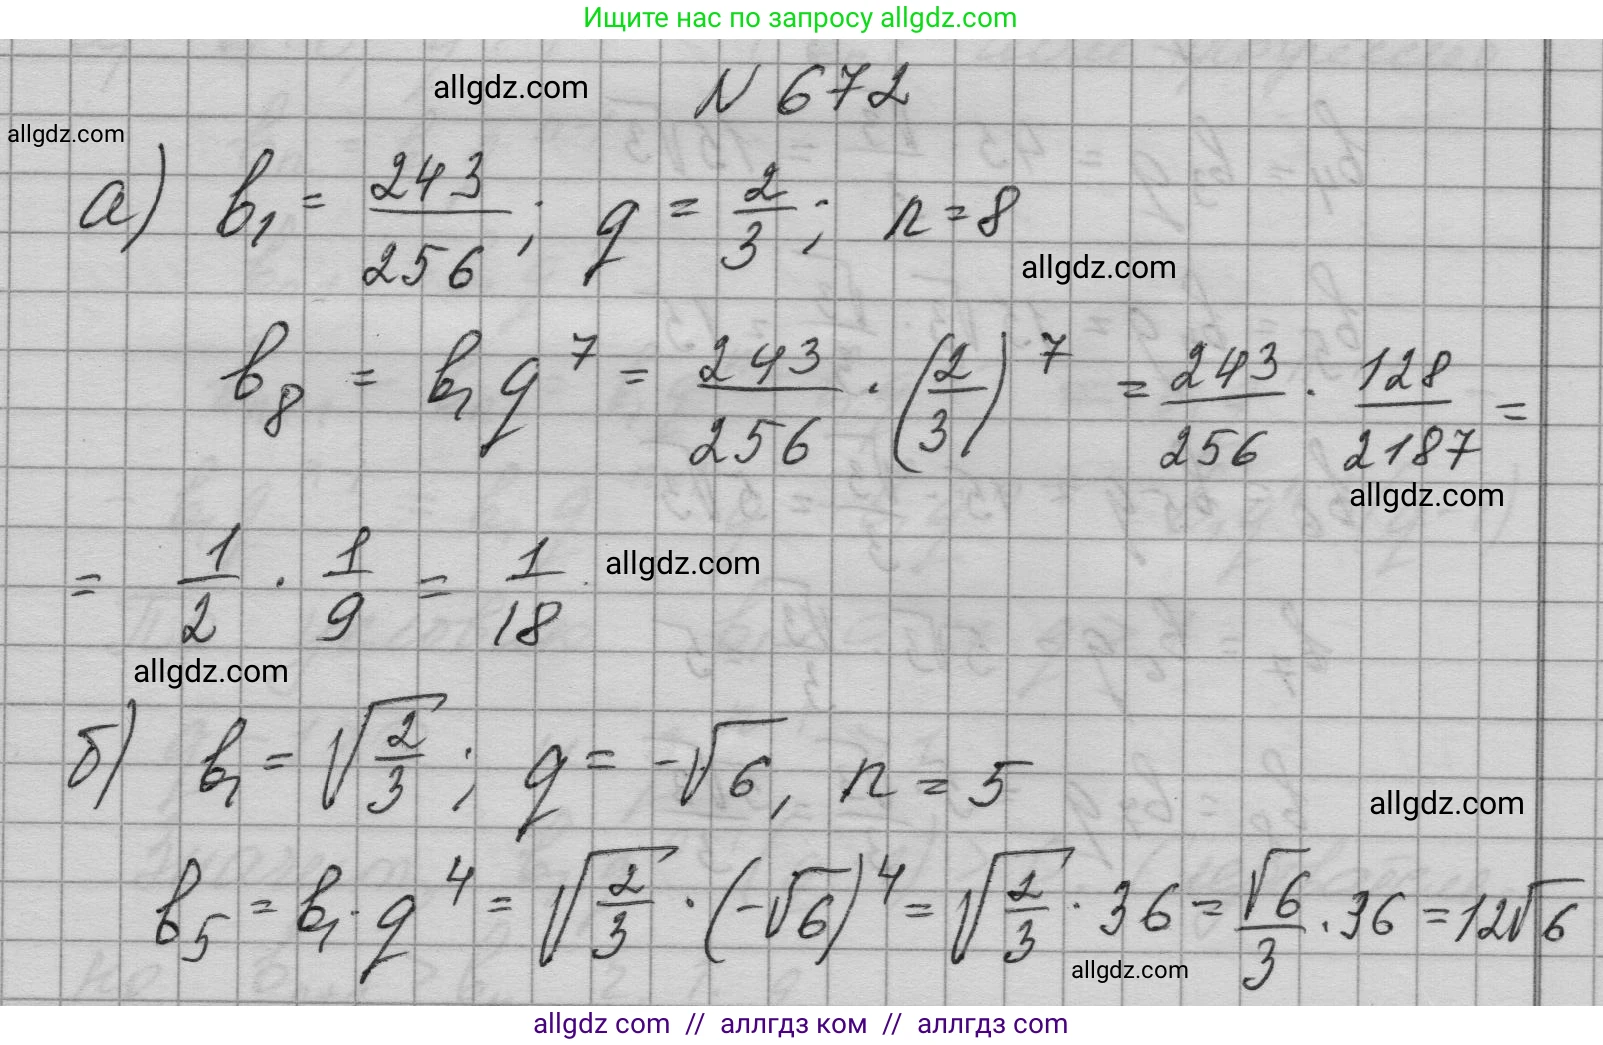 Ищите нас по запросу allgdz.com
allgdz.com
N 672
allgdz.com
а) b₁ = 243/256; q = 2/3; n = 8
allgdz.com
b₈ = b₁q⁷ = 243/256 · (2/3)⁷ = 243/256 · 128/2187 =
allgdz.com
= 1/2 · 1/9 = 1/18
allgdz.com
allgdz.com
б) b₁ = √(2/3); q = -√6, n = 5
allgdz.com
b₅ = b₁ · q⁴ = √(2/3) · (-√6)⁴ = √(2/3) · 36 = √6/3 · 36 = 12√6
allgdz.com
allgdz.com // аллгдз ком // аллгдз com